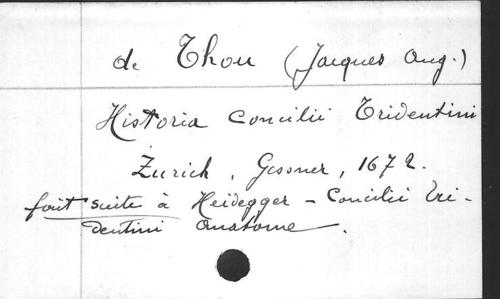 de Thou (Jacques Aug.)
Historia Concilii Tridentini
Zurich, Gessner, 1672.
fait suite à Heidegger - Concilii Tri-
dentini Anatome.